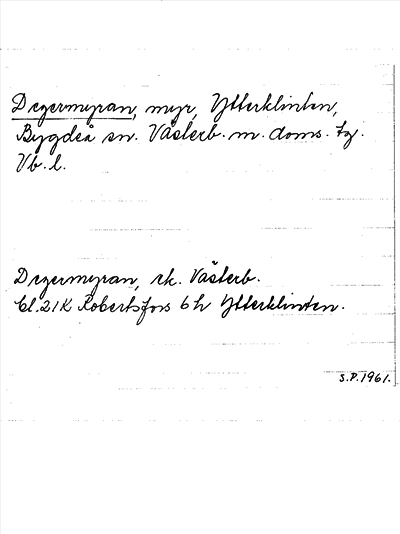 Degermyran, myr, Ytterklinten,
Bygdeå sn. Västerb. m. doms. tg.
Vb. l.
Degermyran, ek. Västerb.
bl. 21K Robertsfors 6 h Ytterklinten.
S.P. 1961.